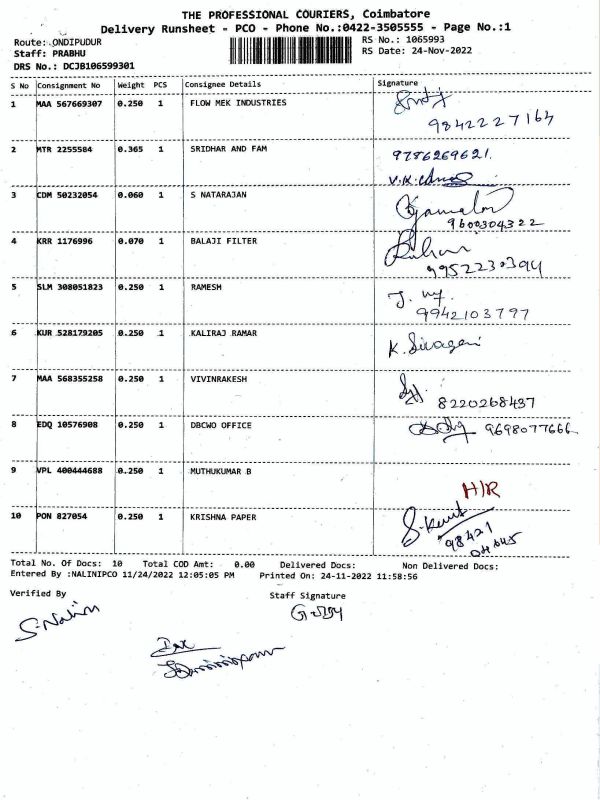 THE PROFESSIONAL COURIERS, Coimbatore
Delivery Runsheet - PCO - Phone No.:0422-3505555 - Page No.:1
Route: ONDIPUDUR
RS No.: 1065993
Staff: PRABHU
RS Date: 24-Nov-2022
DRS No.: DCJB106599301
S No Consignment No Weight PCS Consignee Details Signature
1 MAA 567669307 0.250 1 FLOW MEK INDUSTRIES
9842227164
2 MTR 2255584 0.365 1 SRIDHAR AND FAM 9786269621.
V.K.
3 CDM 50232054 0.060 1 S NATARAJAN
9600304322
4 KRR 1176996 0.070 1 BALAJI FILTER
9952230394
5 SLM 308051823 0.250 1 RAMESH
9942103797
6 KUR 528179205 0.250 1 KALIRAJ RAMAR K. Sivagami
7 MAA 568355258 0.250 1 VIVINRAKESH
8220268437
8 EDQ 10576908 0.250 1 DBCWO OFFICE 9698077666
9 VPL 400444688 0.250 1 MUTHUKUMAR B
H/R
10 PON 827054 0.250 1 KRISHNA PAPER
98421
Total No. Of Docs: 10 Total COD Amt: 0.00 Delivered Docs: Non Delivered Docs:
Entered By :NALINIPCO 11/24/2022 12:05:05 PM Printed On: 24-11-2022 11:58:56
Verified By Staff Signature
S. Nalini